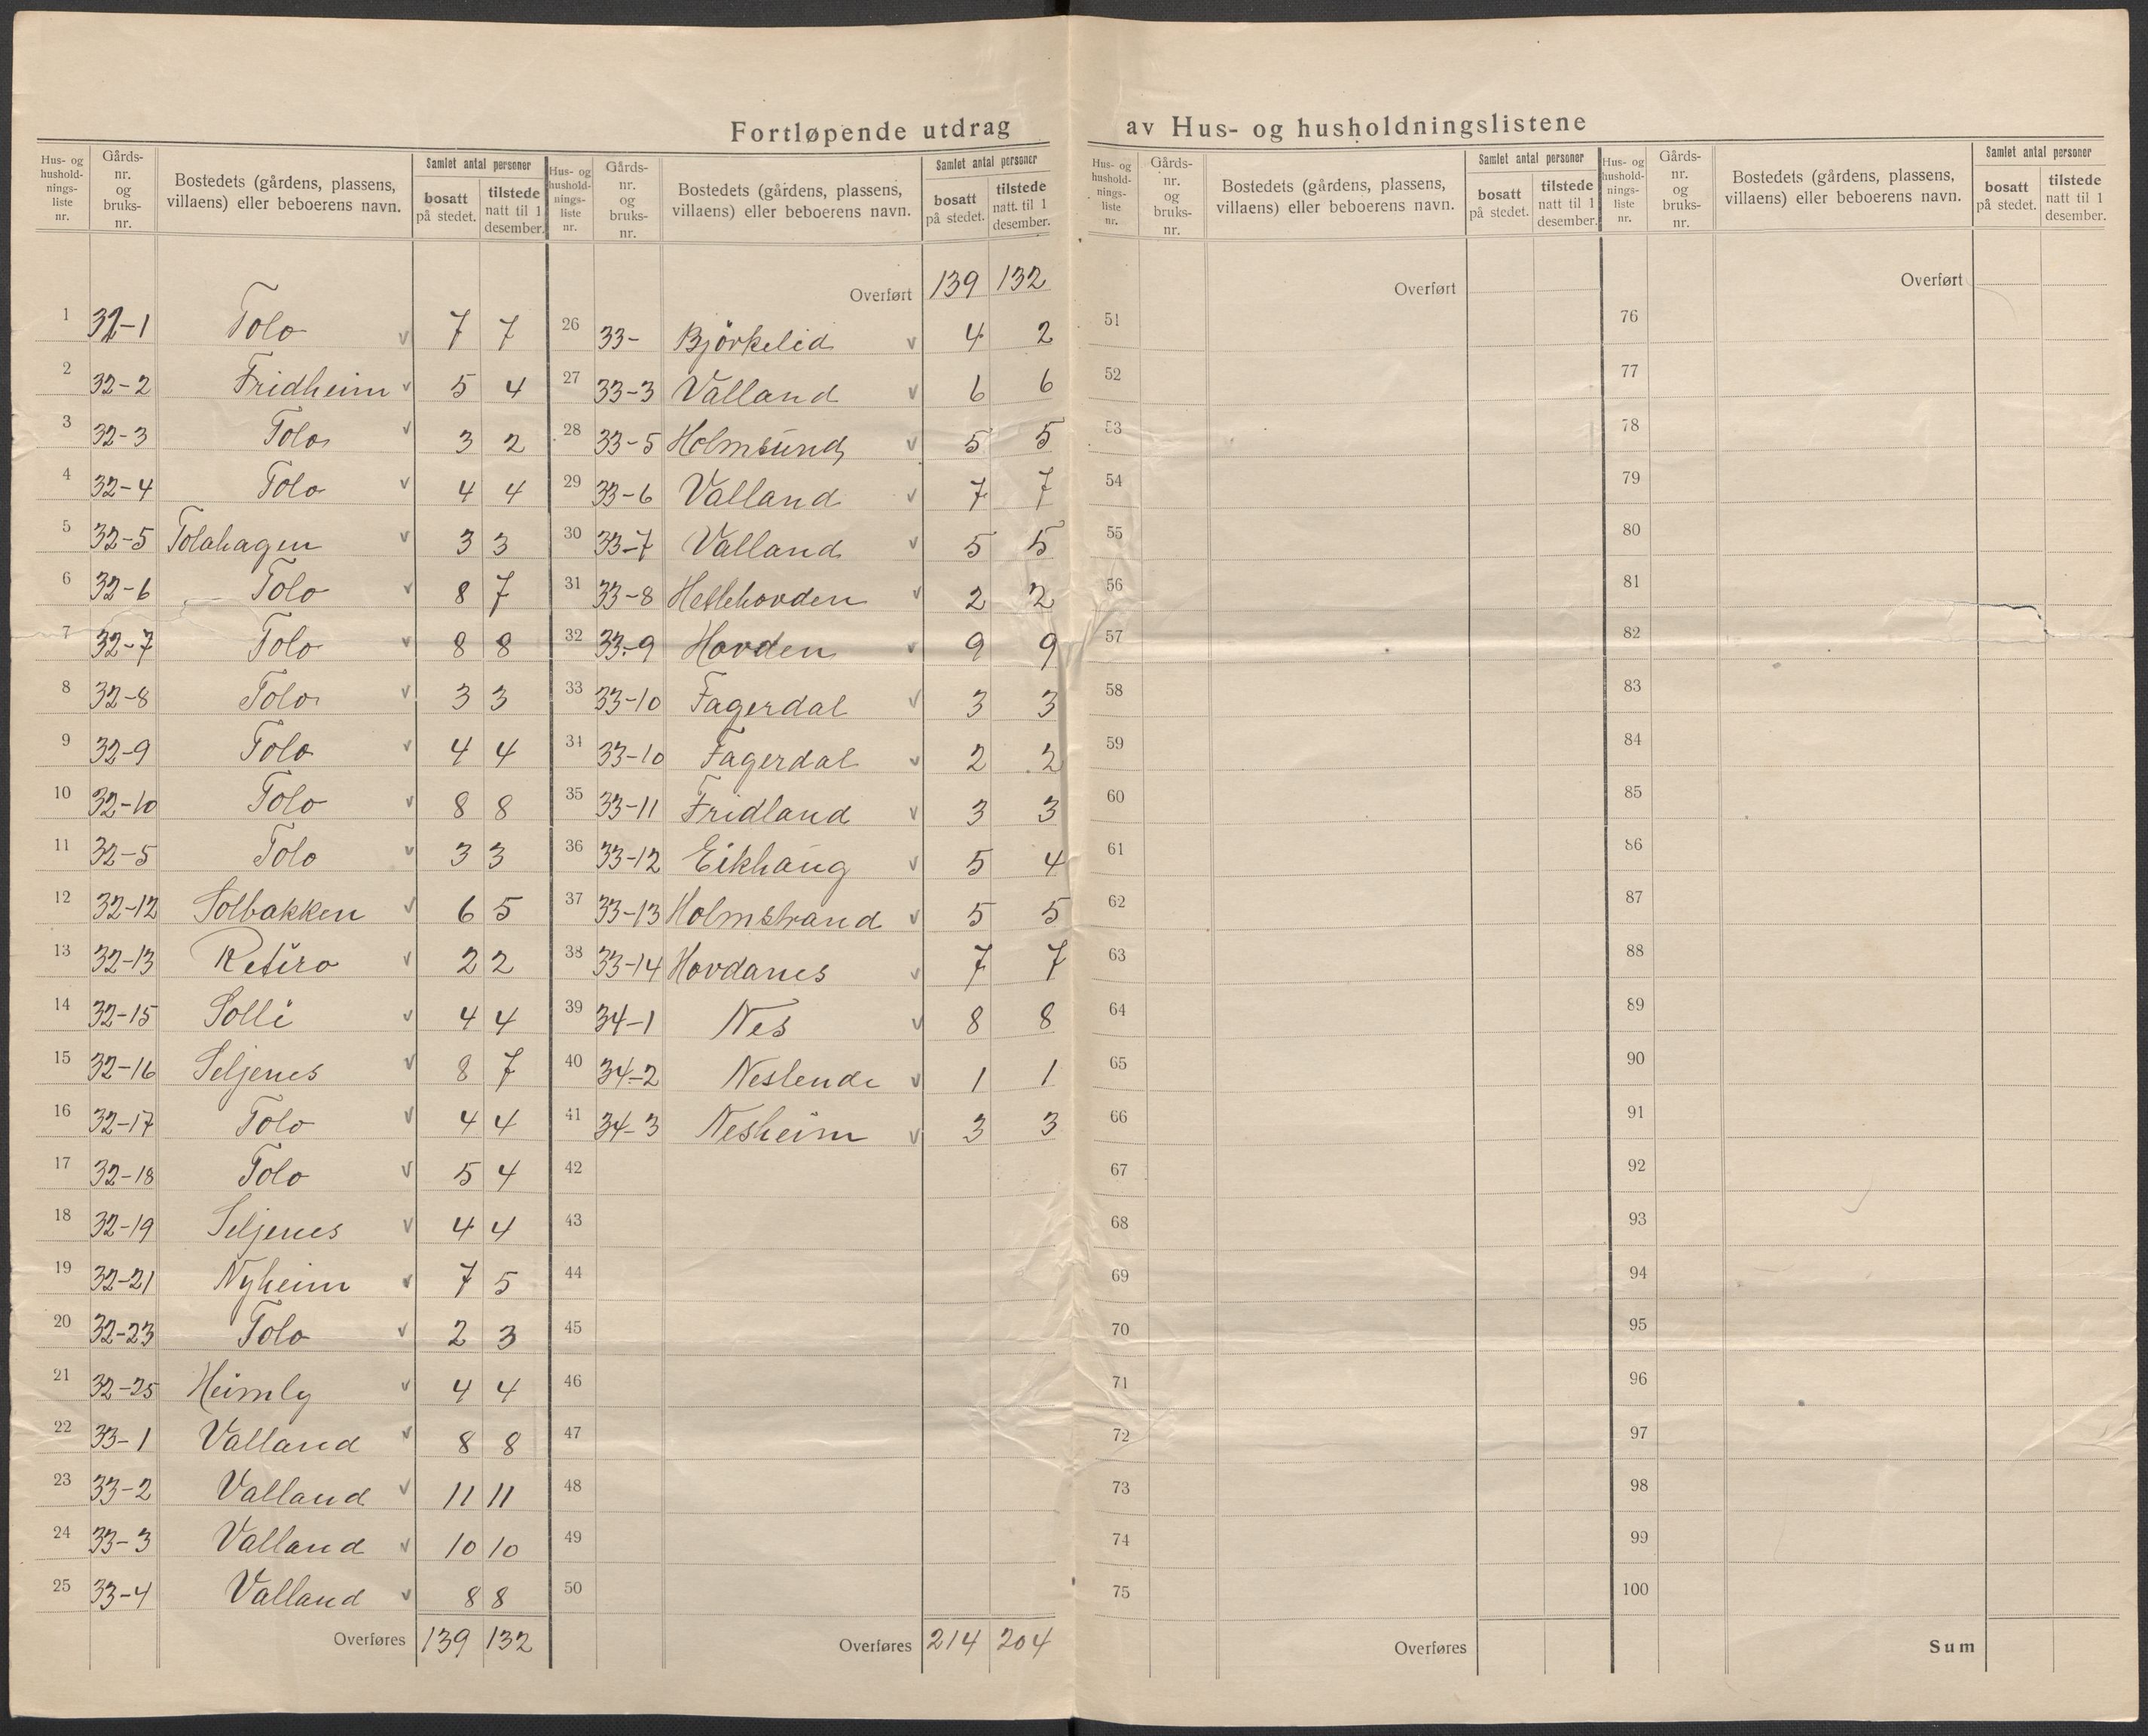 Fortløpende utdrag av Hus- og husholdningslistene
Hus- og hushold-nings-liste nr. Gårds-nr. og bruks-nr. Bostedets (gårdens, plassens, villaens) eller beboerens navn. Samlet antal personer bosatt på stedet. tilstede natt til 1 desember.
1 32-1 Tolo v 7 7
2 32-2 Fridheim v 5 4
3 32-3 Tolo v 3 2
4 32-4 Tolo v 4 4
5 32-5 Tolahagen v 3 3
6 32-6 Tolo v 8 7
7 32-7 Tolo v 8 8
8 32-8 Tolo v 3 3
9 32-9 Tolo v 4 4
10 32-10 Tolo v 8 8
11 32-5 Tolo v 3 3
12 32-12 Solbakken v 6 5
13 32-13 Retiro v 2 2
14 32-15 Solli v 4 4
15 32-16 Seljenes v 8 7
16 32-17 Tolo v 4 4
17 32-18 Tolo v 5 4
18 32-19 Seljenes v 4 4
19 32-21 Nyheim v 7 5
20 32-23 Tolo v 2 3
21 32-25 Heimly v 4 4
22 33-1 Valland v 8 8
23 33-2 Valland v 11 11
24 33-3 Valland v 10 10
25 33-4 Valland v 8 8
Overføres 139 132
Hus- og hushold-nings-liste nr. Gårds-nr. og bruks-nr. Bostedets (gårdens, plassens, villaens) eller beboerens navn. Samlet antal personer bosatt på stedet. tilstede natt til 1 desember.
Overført 139 132
26 33- Björkelid v 4 2
27 33-3 Valland v 6 6
28 33-5 Holmsund v 5 5
29 33-6 Valland v 7 7
30 33-7 Valland v 5 5
31 33-8 Hellehovden v 2 2
32 33-9 Hovden v 9 9
33 33-10 Fagerdal v 3 3
34 33-10 Fagerdal v 2 2
35 33-11 Fridland v 3 3
36 33-12 Eikhaug v 5 4
37 33-13 Holmstrand v 5 5
38 33-14 Hovdanes v 7 7
39 34-1 Nes v 8 8
40 34-2 Neslende v 1 1
41 34-3 Nesheim v 3 3
42
43
44
45
46
47
48
49
50
Overføres 214 204
Hus- og hushold-nings-liste nr. Gårds-nr. og bruks-nr. Bostedets (gårdens, plassens, villaens) eller beboerens navn. Samlet antal personer bosatt på stedet. tilstede natt til 1 desember.
Overført
51
52
53
54
55
56
57
58
59
60
61
62
63
64
65
66
67
68
69
70
71
72
73
74
75
Overføres
Hus- og hushold-nings-liste nr. Gårds-nr. og bruks-nr. Bostedets (gårdens, plassens, villaens) eller beboerens navn. Samlet antal personer bosatt på stedet. tilstede natt til 1 desember.
Overført
76
77
78
79
80
81
82
83
84
85
86
87
88
89
90
91
92
93
94
95
96
97
98
99
100
Sum